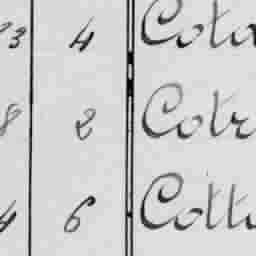 23 4 Cota
8 2 Cotr
4 6 Cott